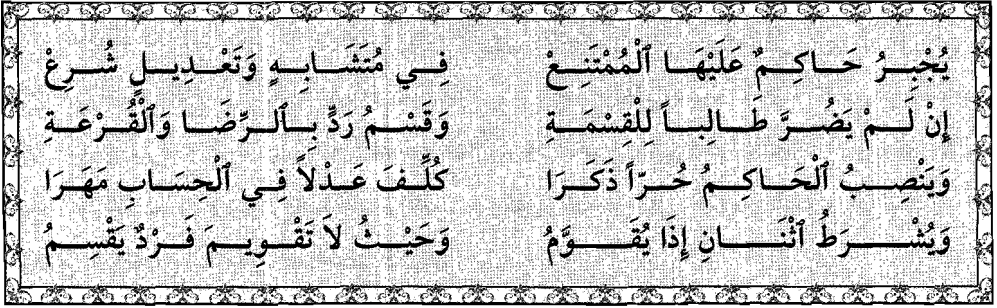 يُجْبِرُ حَاكِمٌ عَلَيْهَا ٱلْمُمْتَنِعْ فِي مُتَشَابِهٍ وَتَعْدِيلٍ شُرِعْ
إِنْ لَمْ يَضُرَّ طَالِباً لِلْقِسْمَةِ وَقَسْمُ رَدٍّ بِٱلرِّضَا وَٱلْقُرْعَةِ
وَيَنْصِبُ ٱلْحَاكِمُ حُرّاً ذَكَرَا كُلِّفَ عَدْلاً فِي ٱلْحِسَابِ مَهَرَا
وَيُشْرَطُ ٱثْنَانِ إِذَا يُقَوَّمُ وَحَيْثُ لاَ تَقْوِيمَ فَرْدٌ يَقْسِمُ